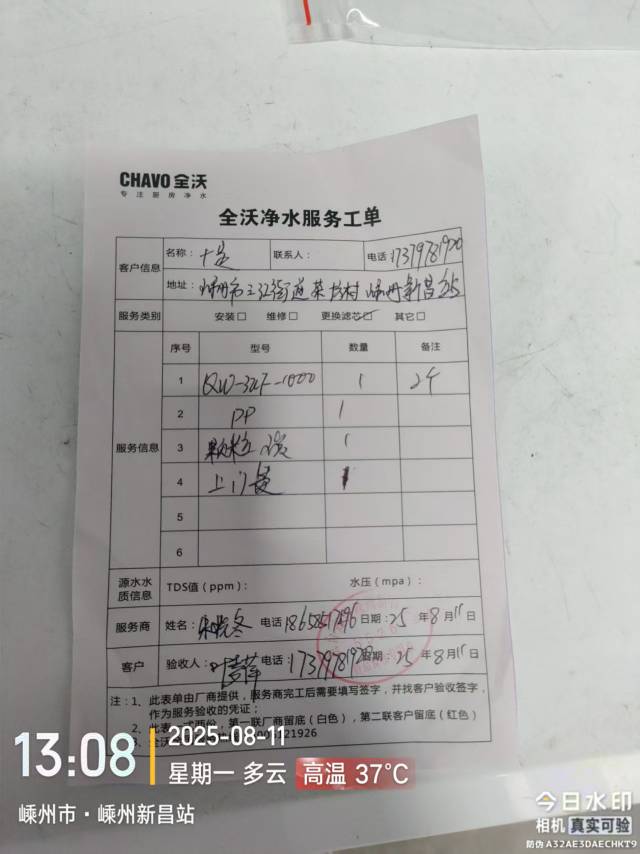 CHAVO 全沃
专注厨房净水
全沃净水服务工单
客户信息
名称：
联系人：
电话：
地址：嵊州市三江街道 村 嵊州新昌站
服务类别 安装□ 维修□ 更换滤芯☑ 其它□
服务信息
序号 型号 数量 备注
1 QW-32F-1000 1
2 PP 1
3 颗粒炭 1
4 上门费 1
5
6
源水水质信息 TDS值（ppm）： 水压（mpa）：
服务商 姓名： 电话 日期：25年8月11日
客户 验收人： 电话： 日期：25年8月11日
注：1、此表单由厂商提供，服务商完工后需要填写签字，并找客户验收签字，
作为服务验收的凭证；
2、此表一式两份，第一联厂商留底（白色），第二联客户留底（红色）
13:08
2025-08-11
星期一 多云
高温 37°C
嵊州市·嵊州新昌站
今日水印
相机 真实可验
防伪 A32AE3DAECHKT9